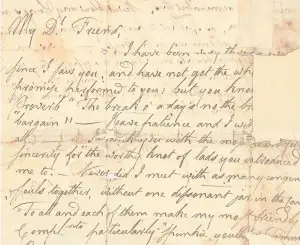 My Dr Friend,
I have been
since I saw you, and have not got the wh
promise performed to you; but you know
Proverb "The break o' a day's no the br
bargain" — have patience and I will
all I with the mo
sincerity for the worthy knot of lads you introduced
me to. — Never did I meet with as many congen
Souls together, without one dissonant jar in the Con
To all and each of them make my mo friend
Compl.nts particularly "Spunkie youth